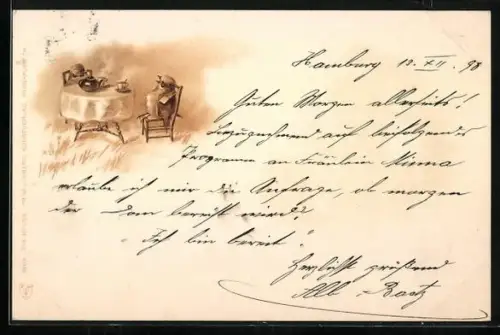 Hamburg 12. XII. 98
Guten Morgen allerseits!
bezugnehmend auf beifolgendes
Programm an Fräulein Minna
erlaube ich mir die Anfrage, ob morgen
der Dom bereist wird?
"Ich bin bereit".
Herzlichst grüßend
Alb.